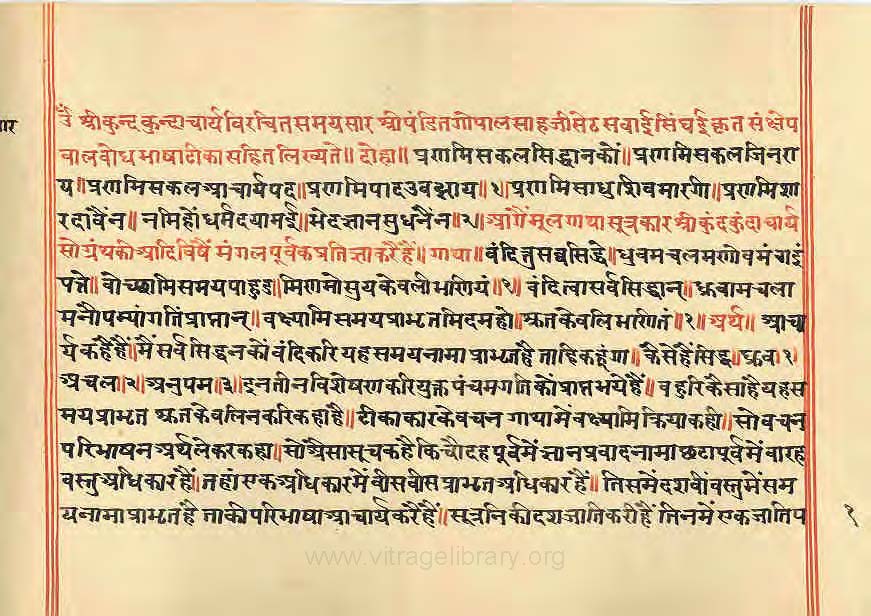 ॐ श्रीकुन्दकुन्दाचार्यविरचितसमयसार श्रीपंडितगोपालसाहजीसेठ सवाईसिंघई कृत संक्षेप
सार
बालबोधभाषाटीकासहितलिख्यते॥ दोहा॥ प्रणमिसकलसिद्धानकों॥ प्रणमिसकलजिनरा
य॥ प्रणमिसकलआचार्यपद॥ प्रणमिपादउवझाय॥१॥ प्रणमिसाधुशिवमारगी॥ प्रणमिशा
रदावैंन॥ नमिहोंधर्मदयामई॥ भेदज्ञानसुधनैंन॥२॥ आगैंमूलगाथासूत्रकार श्रीकुंदकुंदाचार्य
सोग्रंथकीआदिविषैं मंगलपूर्वकप्रतिज्ञाकरैहैं॥ गाथा॥ वंदित्तुसव्वसिद्धे॥ धुवमचलमणोवमंगइं
पत्ते॥ वोच्छामिसमयपाहुड॥ मिणमोसुयकेवलीभणियं॥१॥ वंदित्वासर्वसिद्धान्॥ ध्रुवामचला
मनौपम्यांगतिंप्राप्तान्॥ वक्ष्यामिसमयप्राभृतमिदमहो॥ श्रुतकेवलिभाणितं॥१॥ अर्थ॥ आचा
र्यकहैहैं॥ मैंसर्वसिद्धनकोंवंदिकरियहसमयनामाप्राभृतहै ताहिकहूंगा॥ कैसेहैंसिद्ध॥ ध्रुव॥१
अचल॥२॥ अनुपम॥३॥ इनतीनविशेषणकरियुक्त पंचमगतिकोंप्राप्तभयेहैं॥ बहुरिकैसाहैयहस
मयप्राभृत श्रुतकेवलिनकरिकहाहै॥ टीकाकारकेवचन गाथामेंवक्ष्यामिक्रियाकही॥ सोवचन
परिभाषनअर्थलेकरकह्या॥ सोऐसासूचकहैकिचौदहपूर्वमेंज्ञानप्रवादनामाछटापूर्वमेंबारह
वस्तुअधिकारहैं॥ तहांएकअधिकारमेंवीसवीसप्राभृतअधिकारहैं॥ तिसमेंदशवींवस्तुमेंसम
यनामाप्राभृतहै ताकीपरिभाषाआचार्यकरैहैं॥ सूत्रनिकीदशजातिकरीहैं तिनमेंएकजातिप
१
www.vitragelibrary.org